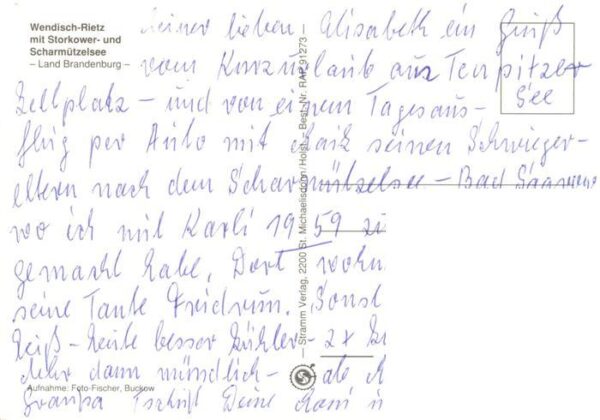 Wendisch-Rietz
mit Storkower- und
Scharmützelsee
– Land Brandenburg –
Meiner lieben Elisabeth ein Gruß
vom Kurzurlaub am Teupitzer
See
Zeltplatz – und von einem Tagesaus-
flug per Auto mit seinen Schwieger-
eltern nach dem Scharmützelsee – Bad Saarow
wo ich mit Karli 1959 zi
gemacht habe, Dort wohn
seine Tante Fridrum. Sonst
heiß – heute besser kühler – 2x
Mehr dann mündlich –
Granpa Tschüß Deine
Aufnahme: Foto-Fischer, Buckow
– Stramm Verlag, 2200 St. Michaelisdonn/Holst. – Best.-Nr. RAP 91273 –